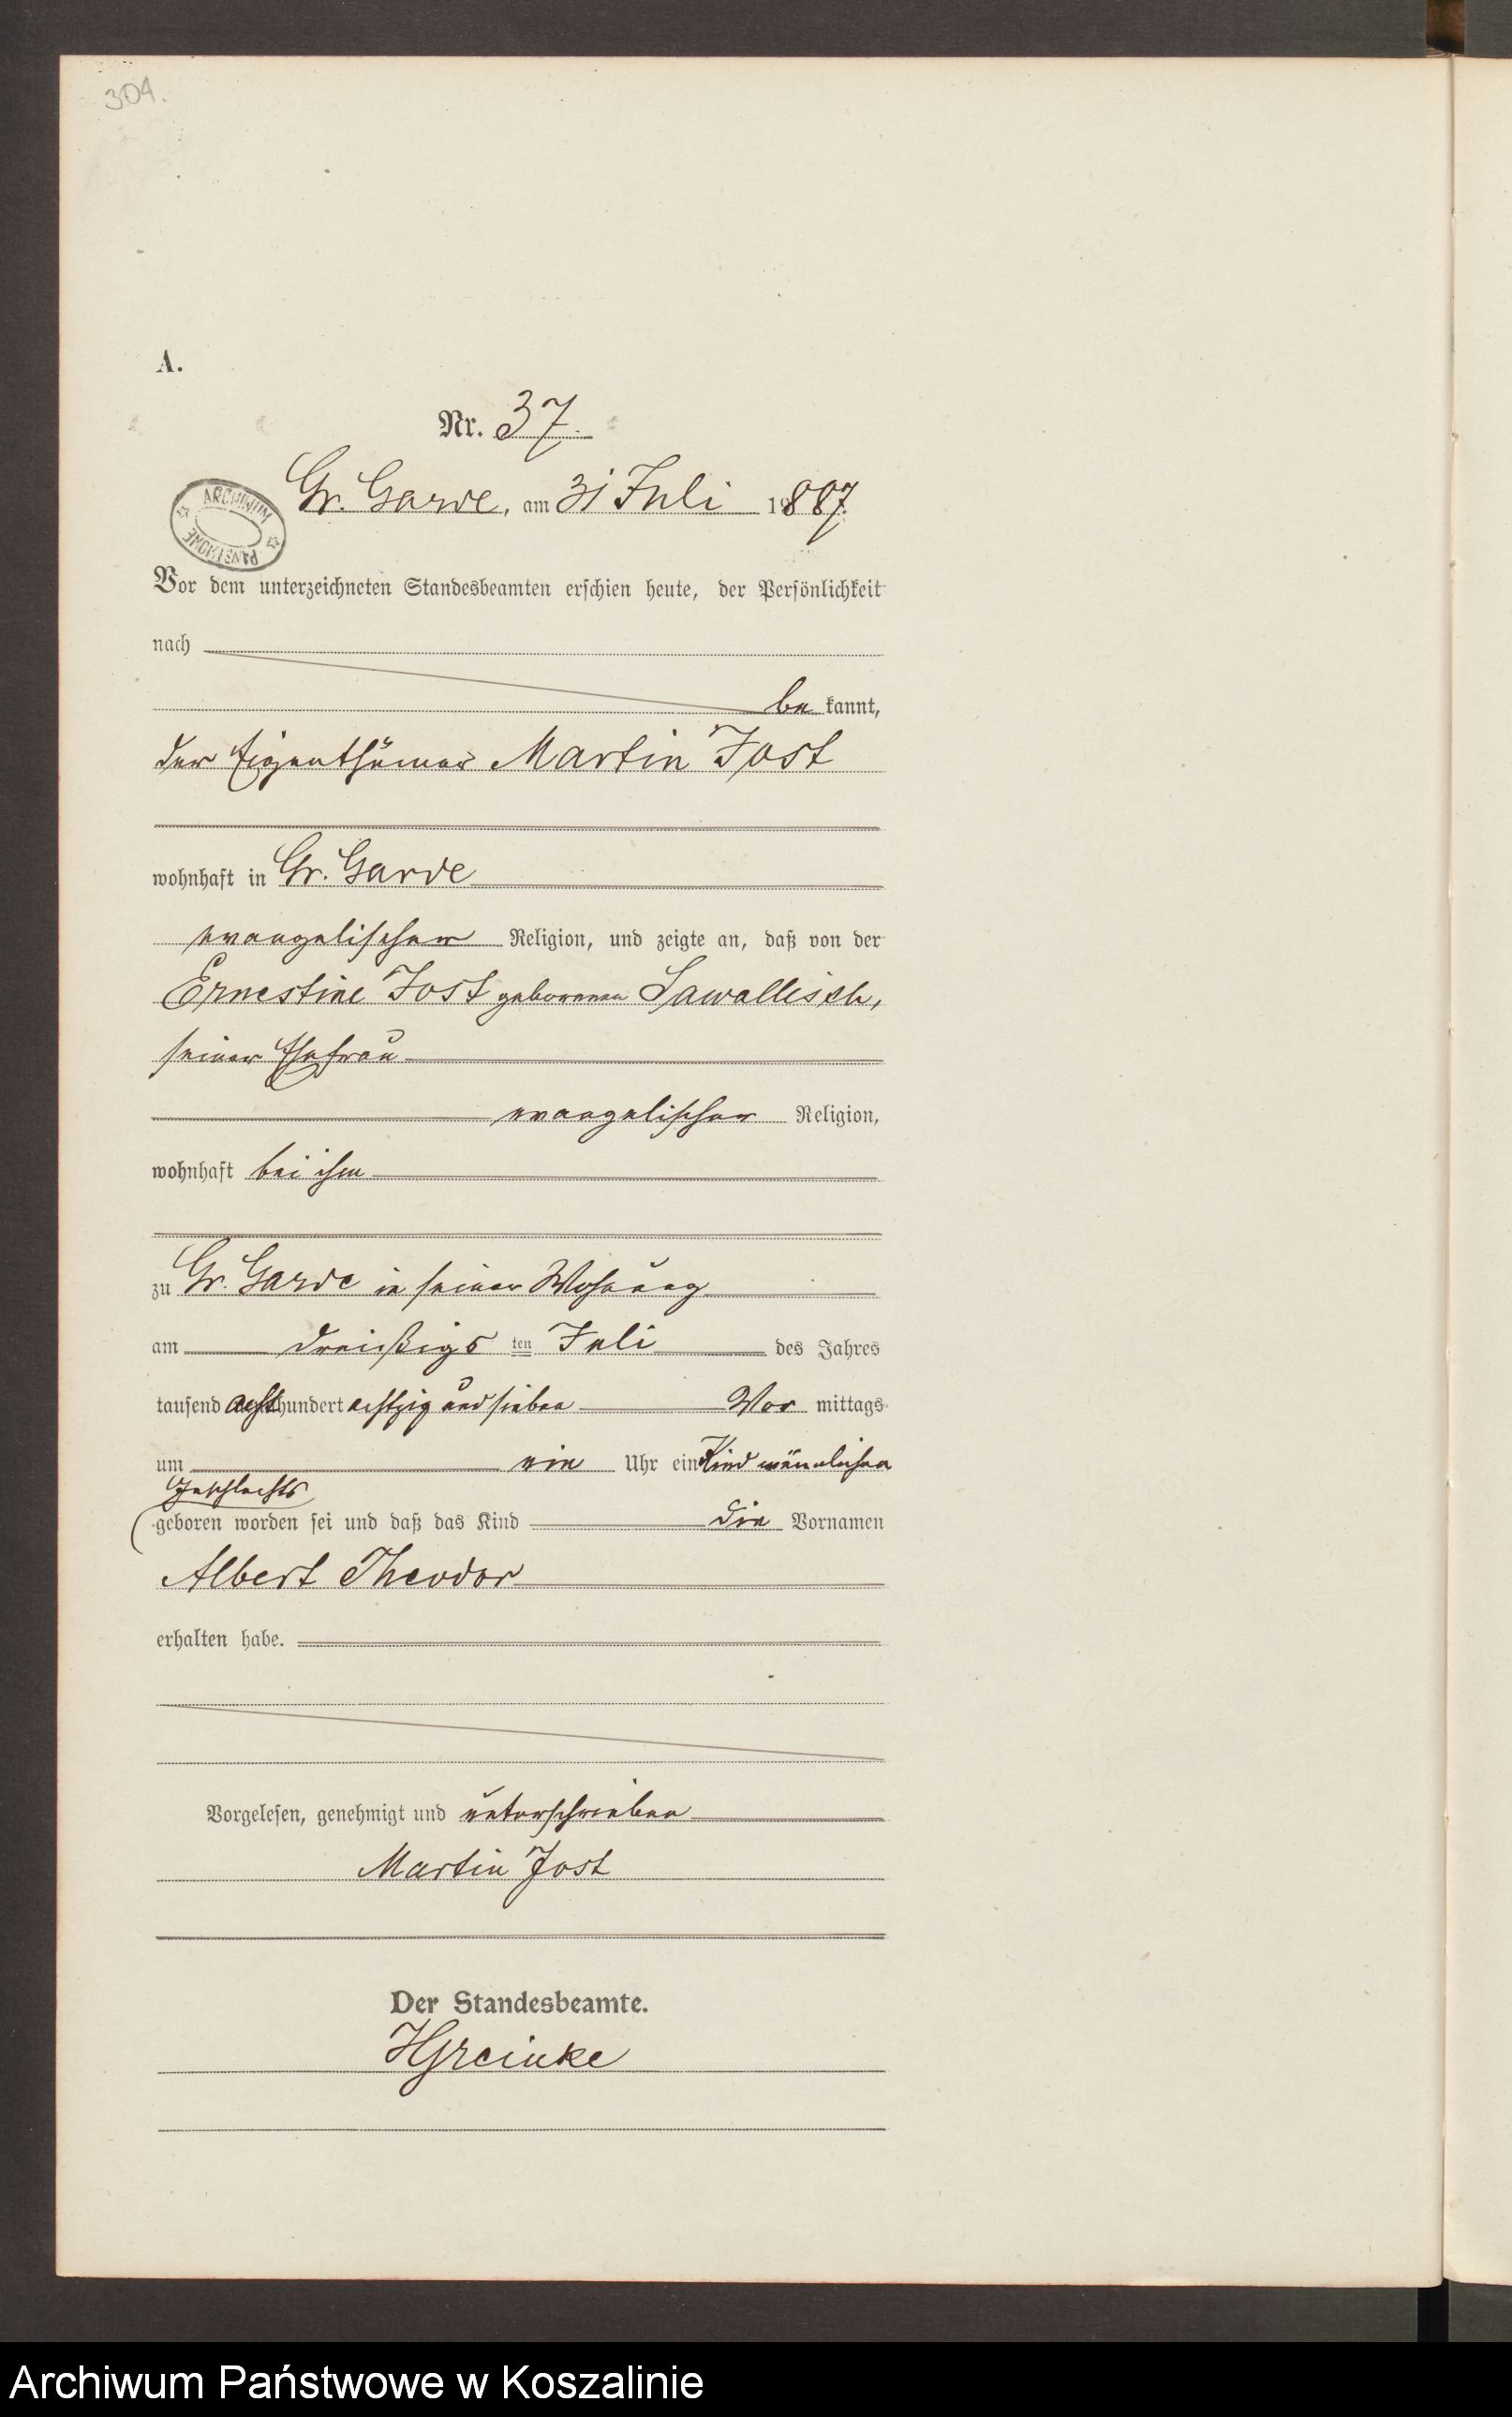 304.
A.
Nr. 37.
ARCHIWUM PAŃSTWOWE
Gr. Garde, am 31 Juli 1887.
Vor dem unterzeichneten Standesbeamten erschien heute, der Persönlichkeit
nach
be kannt,
der Eigenthümer Martin Jost
wohnhaft in Gr. Garde
evangelischer Religion, und zeigte an, daß von der
Ernestine Jost geborenen Sawallisch,
seiner Ehefrau
evangelischer Religion,
wohnhaft bei ihm
zu Gr. Garde in seiner Wohnung
am dreißigs ten Juli des Jahres
tausend acht hundert achtzig und sieben Vor mittags
um ein Uhr ein Kind männlichen
Geschlechts
geboren worden sei und daß das Kind die Vornamen
Albert Theodor
erhalten habe.
Vorgelesen, genehmigt und unterschrieben
Martin Jost
Der Standesbeamte.
HGreinke
Archiwum Państwowe w Koszalinie